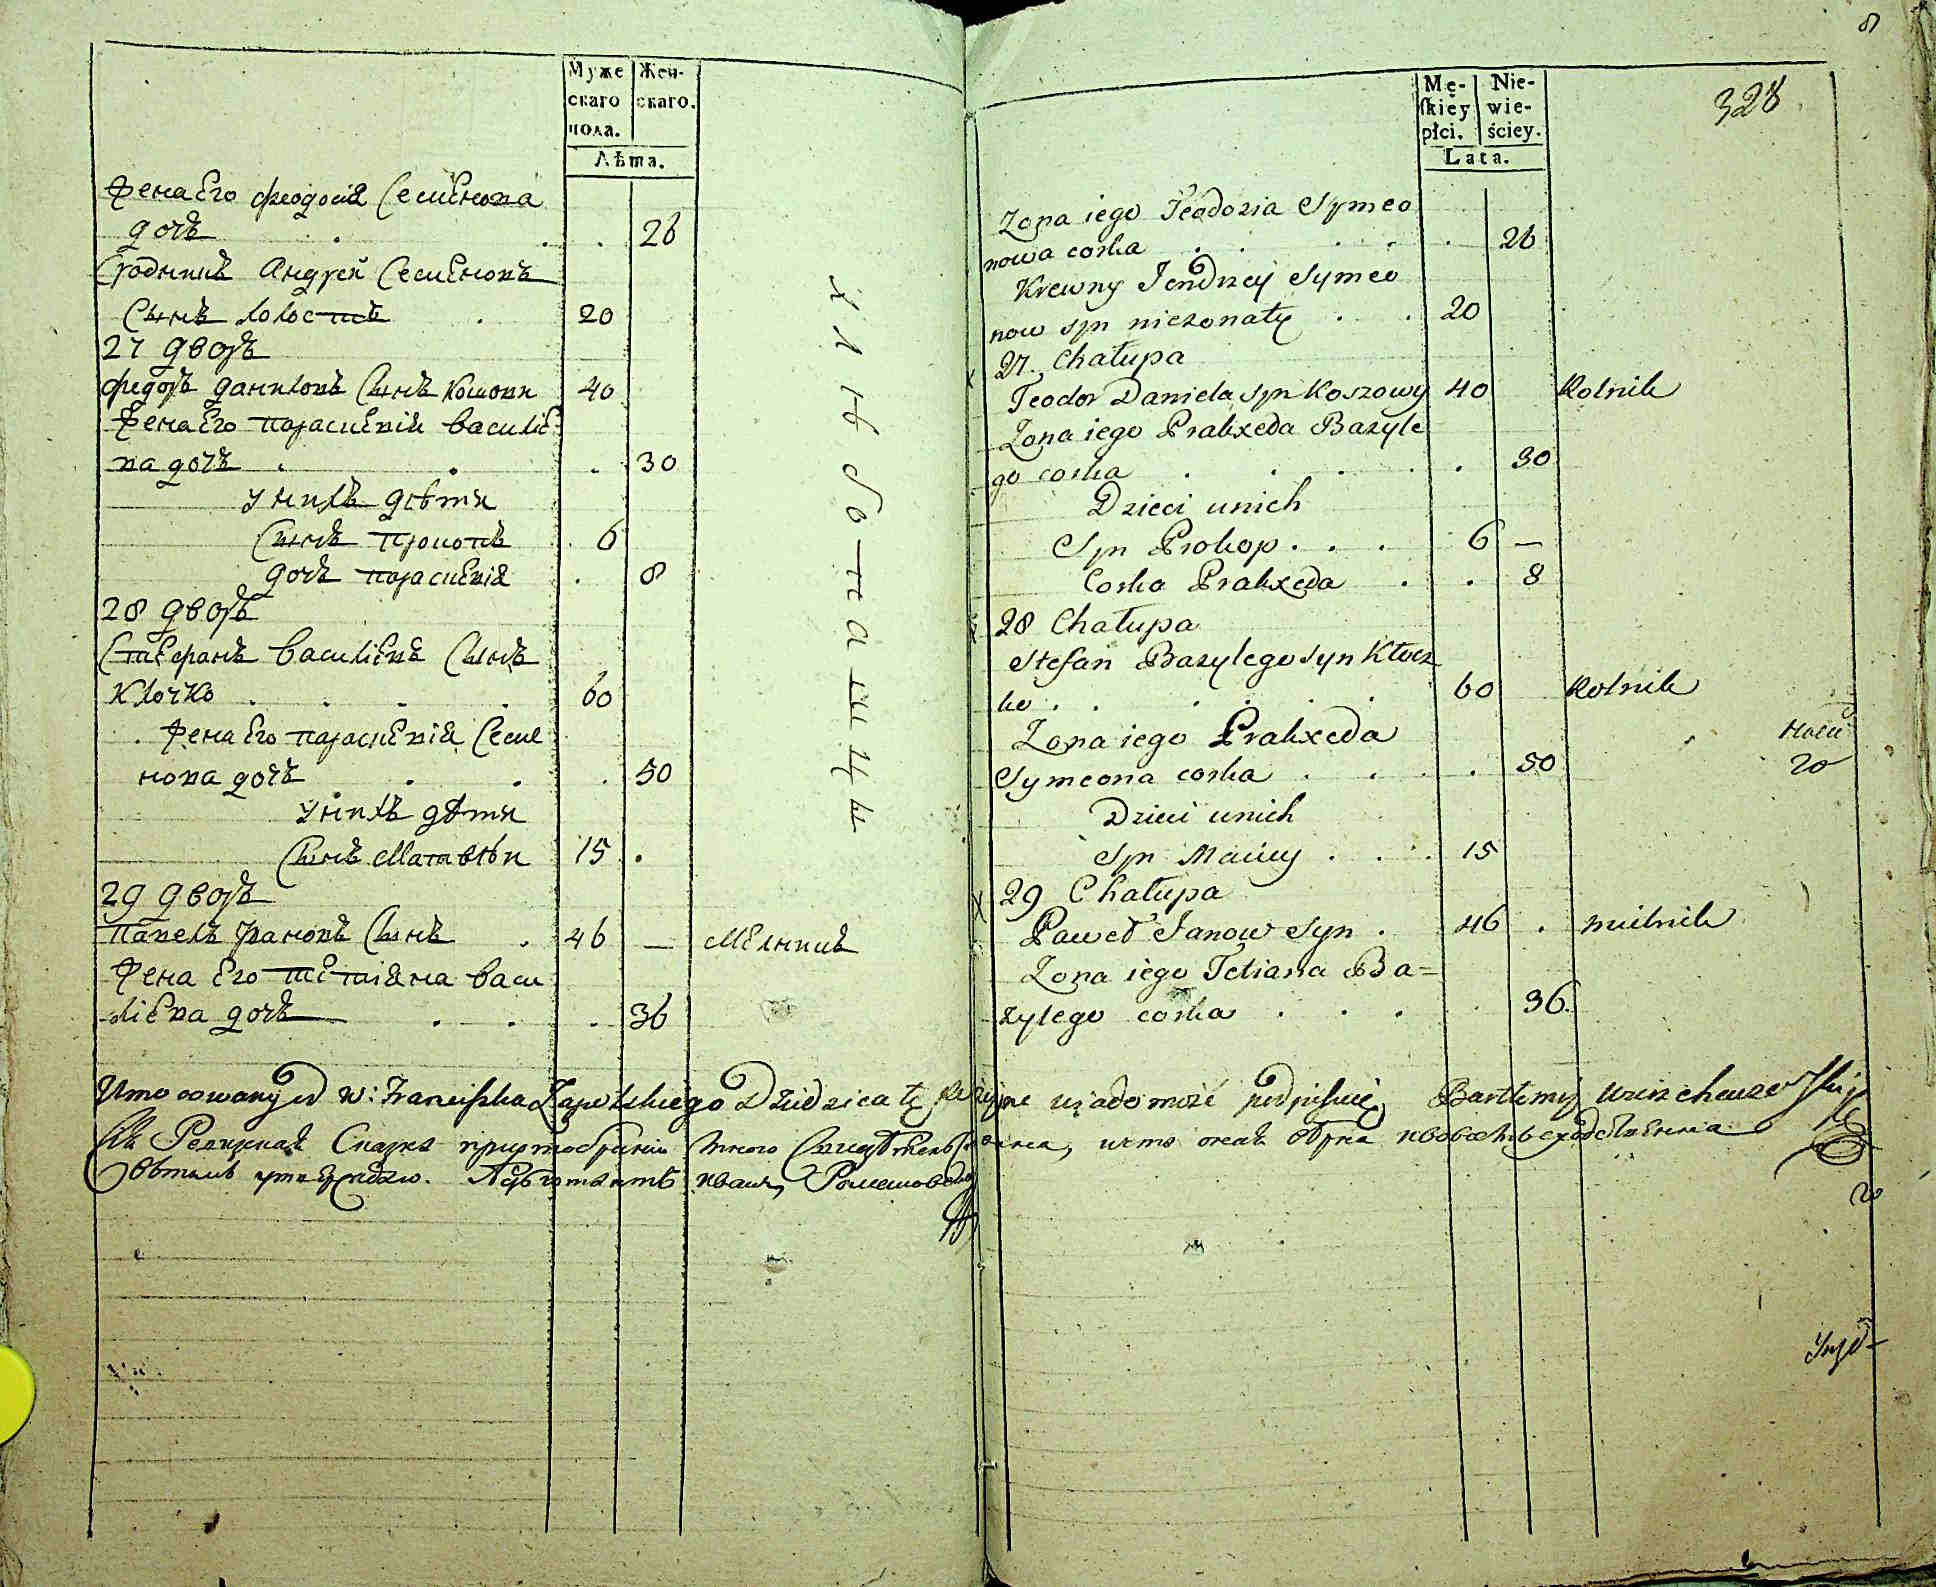 Муже
скаго
пола.
Жен-
скаго.
Лѣта.
жена Его феодосія Семенова
дочь . . . 26
Сродникъ Андрей Семеновъ
Сынъ холостъ . 20
27 дворъ
федоръ даниловъ Сынъ Кошови 40
жена Его параскевія василіе
ва дочь . . . 30
у нихъ дѣти
Сынъ прокопъ . 6
дочь параскевія . 8
28 дворъ
Стефанъ василіевъ Сынъ
Клочко . . . . 60
жена Его параскевія Семе
нова дочь . . . 50
у нихъ дѣти
Сынъ Матвѣи 15 .
29 дворъ
павелъ Ивановъ Сынъ . 46 — Мелникъ
жена Его тетіяна васи
ліева дочь . . . 36
хлѣбопашцы
8
328
Mę-
skiey
płci.
Nie-
wie-
ściey.
Lata.
Zona iego Teodozia Symeo
nowa corka . . . . . 26
Krewny Jendrzey Symeo
now syn niezonaty . . 20
27. Chałupa
Teodor Daniela syn Koszowy 40 Rolnik
Zona iego Prakxeda Bazyle
go corka . . . . . 30
Dzieci unich
Syn Prokop . . . 6 —
Corka Prakxeda . . 8
28 Chałupa
Stefan Bazylego syn Kłocz
ko . . . . . 60 Rolnik
Zona iego Prakxeda
Symeona corka . . . . 50
Dzieci unich
Syn Maciey . . . 15
29 Chałupa
Paweł Janow Syn . 46 . mielnik
Zona iego Tetiana Ba=
zylego corka . . . . 36.
Umocowany od W: Franciszka Dziedzica tę wiadomość podpisuię Bartłomiy
Ревизская Сказка